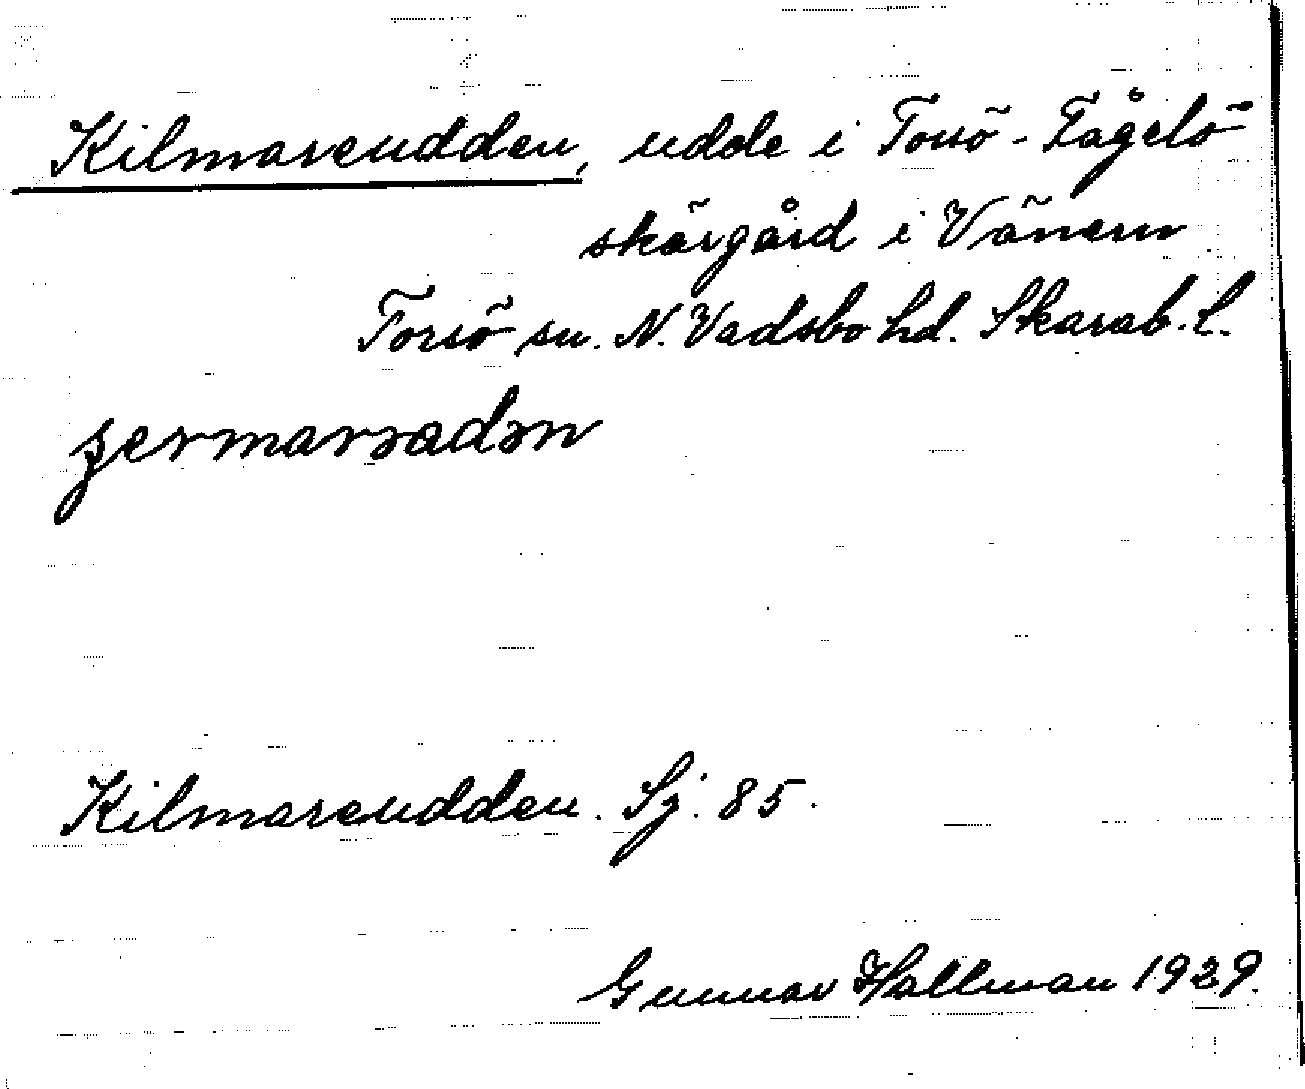 Kilmareudden, udde i Torsö-Fågelö
skärgård i Vänern
Torsö sn. N. Vadsbo hd. Skarab. l.
Kilmareudden. Sj. 85.
Gunnar Hallman 1929.